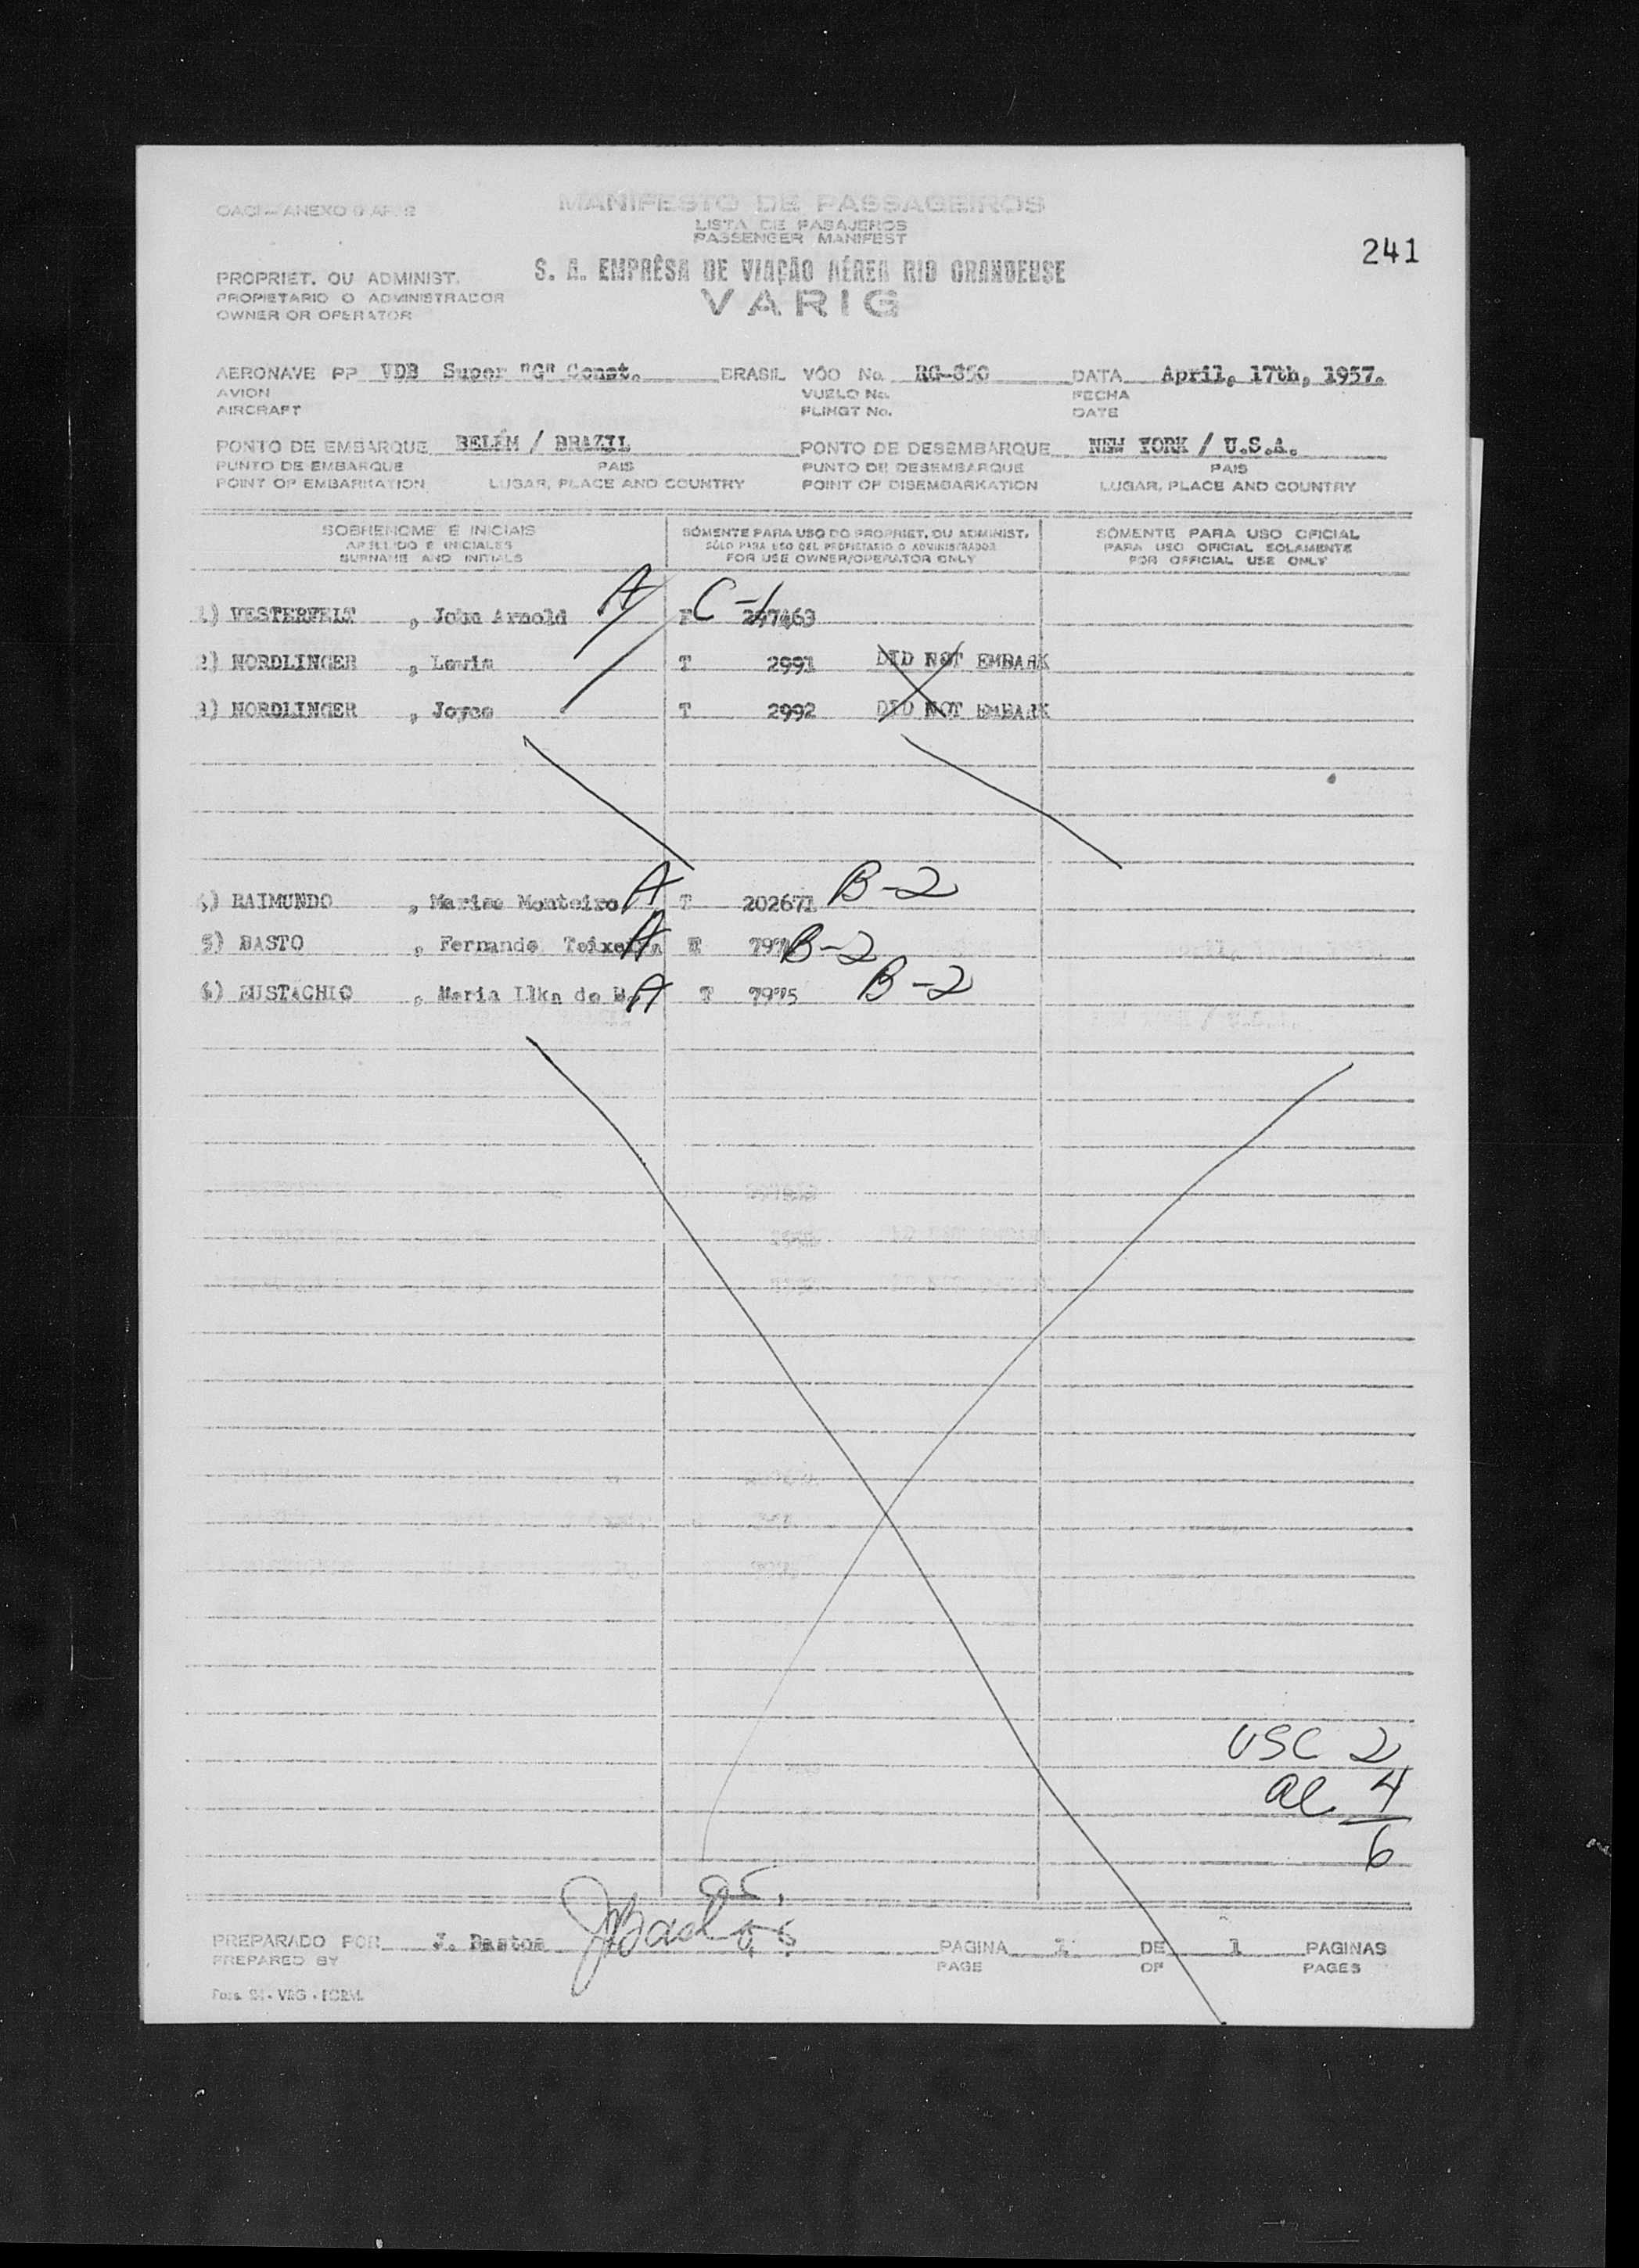 MANIFESTO DE PASSAGEIROS
LISTA DE PASAJEROS
PASSENGER MANIFEST
241
PROPRIET. OU ADMINIST. S. A. EMPRÊSA DE VIAÇÃO AÉREA RIO GRANDENSE
PROPIETARIO O ADMINISTRADOR VARIG
OWNER OR OPERATOR
AERONAVE PP VDB Super "G" Const. BRASIL VÔO No. RG-850 DATA April, 17th, 1957.
AVION VUELO No. FECHA
AIRCRAFT FLIHGT No. DATE
PONTO DE EMBARQUE BELÉM / BRAZIL PONTO DE DESEMBARQUE NEW YORK / U.S.A.
PUNTO DE EMBARQUE PAIS PUNTO DE DESEMBARQUE PAIS
POINT OF EMBARKATION LUGAR, PLACE AND COUNTRY POINT OF DISEMBARKATION LUGAR, PLACE AND COUNTRY
SOBRENOME E INICIAIS SÓMENTE PARA USO DO PROPRIET. OU ADMINIST. SÓMENTE PARA USO OFICIAL
APELLIDO E INICIALES SÓLO PARA USO DEL PROPIETARIO O ADMINISTRADOR PARA USO OFICIAL SOLAMENTE
SURNAME AND INITIALS FOR USE OWNER/OPERATOR ONLY FOR OFFICIAL USE ONLY
1) WESTERVELT , John Arnold A F C-1 297463
2) NORDLINGER , Lewis T 2991 DID NOT EMBARK
3) NORDLINGER , Joyce T 2992 DID NOT EMBARK
4) RAIMUNDO , Marise Monteiro A T 202671 B-2
5) BASTO , Fernando Teixeira A T B-2
6) EUSTACHIO , Maria Ilka de A T 7975 B-2
USC 2
al 4
6
PREPARADO POR J. Bastos JBastos PAGINA 1 DE 1 PAGINAS
PREPARED BY PAGE OF PAGES